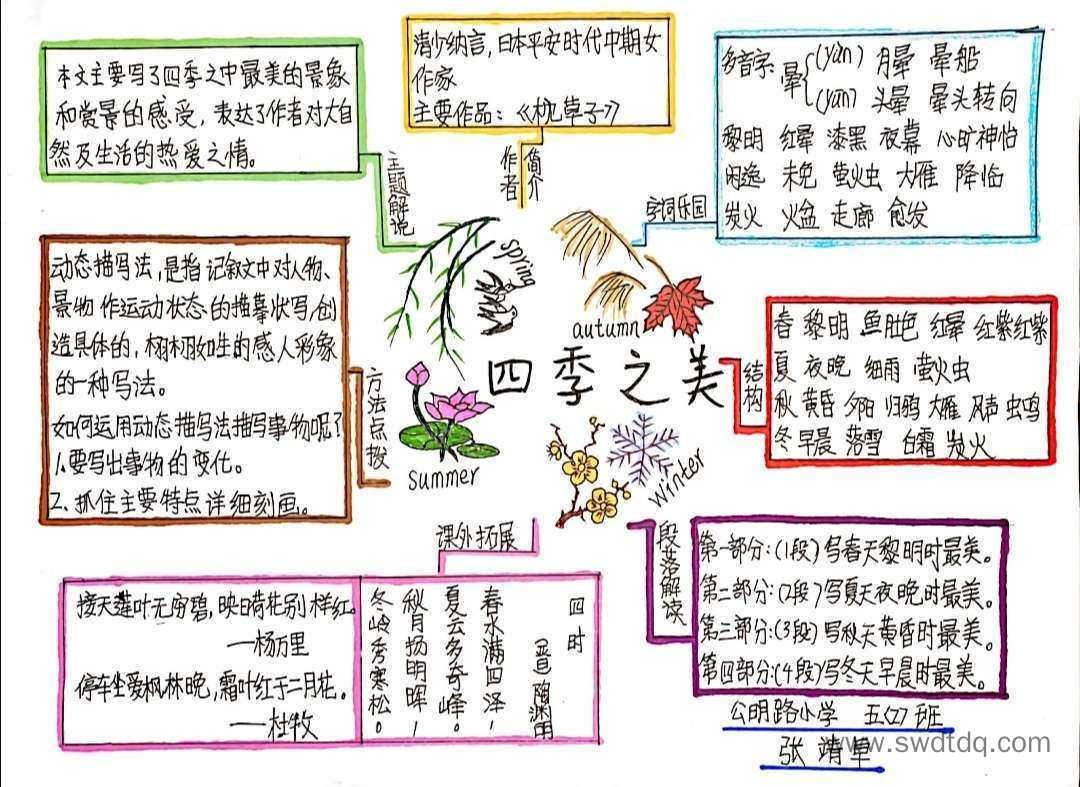 本文主要写了四季之中最美的景象
和赏景的感受，表达了作者对大自
然及生活的热爱之情。
主题解说
清少纳言，日本平安时代中期女
作家
主要作品：《枕草子》
作者
简介
多音字：晕
(yùn) 月晕 晕船
(yūn) 头晕 晕头转向
黎明 红晕 漆黑 夜幕 心旷神怡
闲逸 未免 萤火虫 大雁 降临
炭火 火盆 走廊 愈发
字词乐园
动态描写法，是指记叙文中对人物、
景物作运动状态的描摹状写，创
造具体的，栩栩如生的感人彩象
的一种写法。
如何运用动态描写法描写事物呢？
1.要写出事物的变化。
2.抓住主要特点详细刻画。
方法点拨
spring
autumn
四季之美
summer
winter
结构
春 黎明 鱼肚色 红晕 红紫红紫
夏 夜晚 细雨 萤火虫
秋 黄昏 夕阳 归鸦 大雁 风声 虫鸣
冬 早晨 落雪 白霜 炭火
课外拓展
接天莲叶无穷碧，映日荷花别样红。
——杨万里
停车坐爱枫林晚，霜叶红于二月花。
——杜牧
四时
陶渊明
春水满四泽，
夏云多奇峰。
秋月扬明晖，
冬岭秀寒松。
段落解读
第一部分：(1段)写春天黎明时最美。
第二部分：(2段)写夏天夜晚时最美。
第三部分：(3段)写秋天黄昏时最美。
第四部分：(4段)写冬天早晨时最美。
公明路小学 五(2)班
张靖
www.swdtdq.com